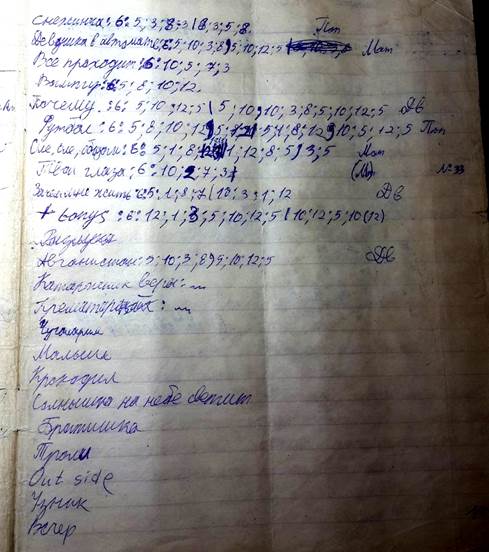 Снежинка: 6: 5; 3; 8; 3 | 8; 3; 5; 8.
Поп
Девушка в автомате: 6: 5; 10; 3; 8; 5; 10; 12; 5 Мат
Всё проходит: 6: 10; 5; 7; 3
Вампир: 6: 5; 8; 10; 12
Почему: 6: 5; 10; 12; 5 | 5; 10; 10; 3; 8; 5; 10; 12; 5 Дв
Футбол: 6: 5; 8; 10; 12 5; 1; 8; 12 10; 5; 12; 5 Поп
6: 5; 1; 8; 1; 12; 8; 5 3; 5 Мат
Твои глаза; 6; 10; 2; 7; 3 (М) №33
Зачем мне жить: 6: 5; 1; 8; 7 | 10; 3; 1; 12 Дв
+ бонус: 6: 12; 1; 3; 5; 10; 12; 5 | 10; 12; 5; 10 (12)
Афганистан: 5; 10; 3; 8; 5; 10; 12; 5 Дв
Катаржник веры:
Чуголарии
Малыше
Крокодил
Солнышко на небе светит
Братишка
Тролли
Out side
Узник
Вечер